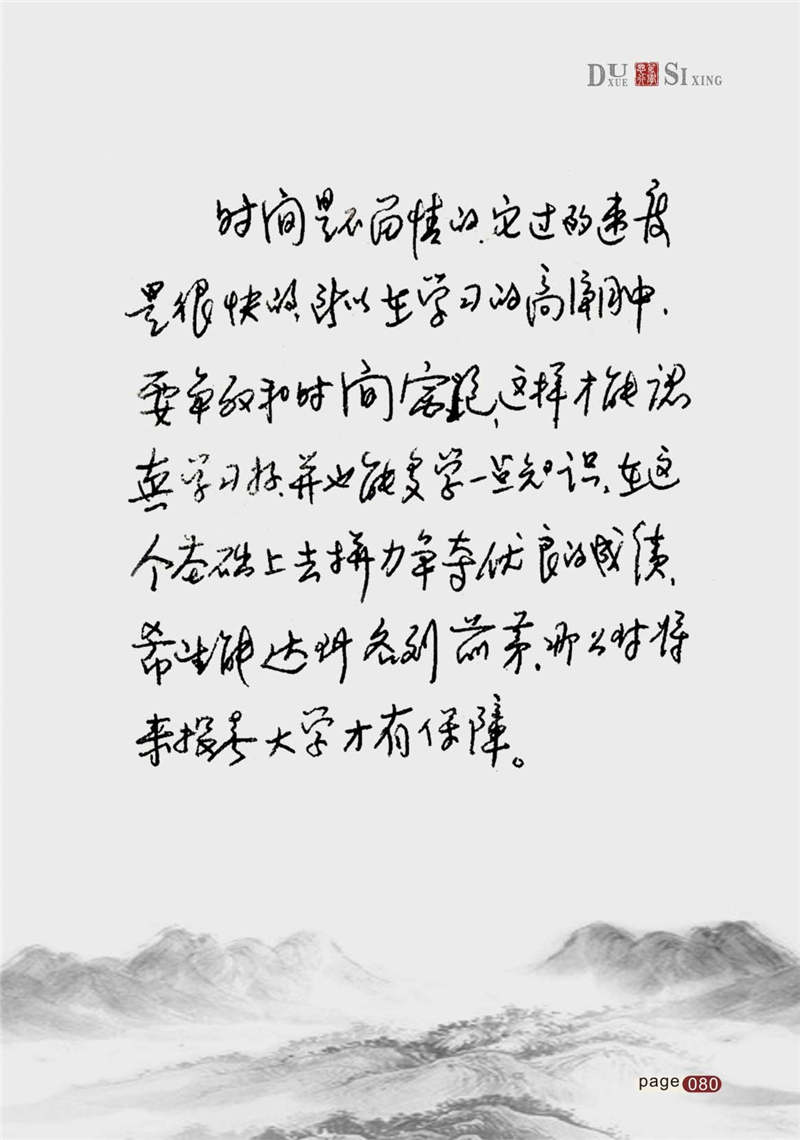 DU XUE SI XING
时间是不留情的，它过的速度
是很快的，所以在学习的高潮中，
要争取和时间赛跑，这样才能认
真学习好，并也能多学一些知识，在这
个基础上去拼力争夺优良的成绩，
希望能达到名列前茅，那么对将
来投考大学才有保障。
page 080